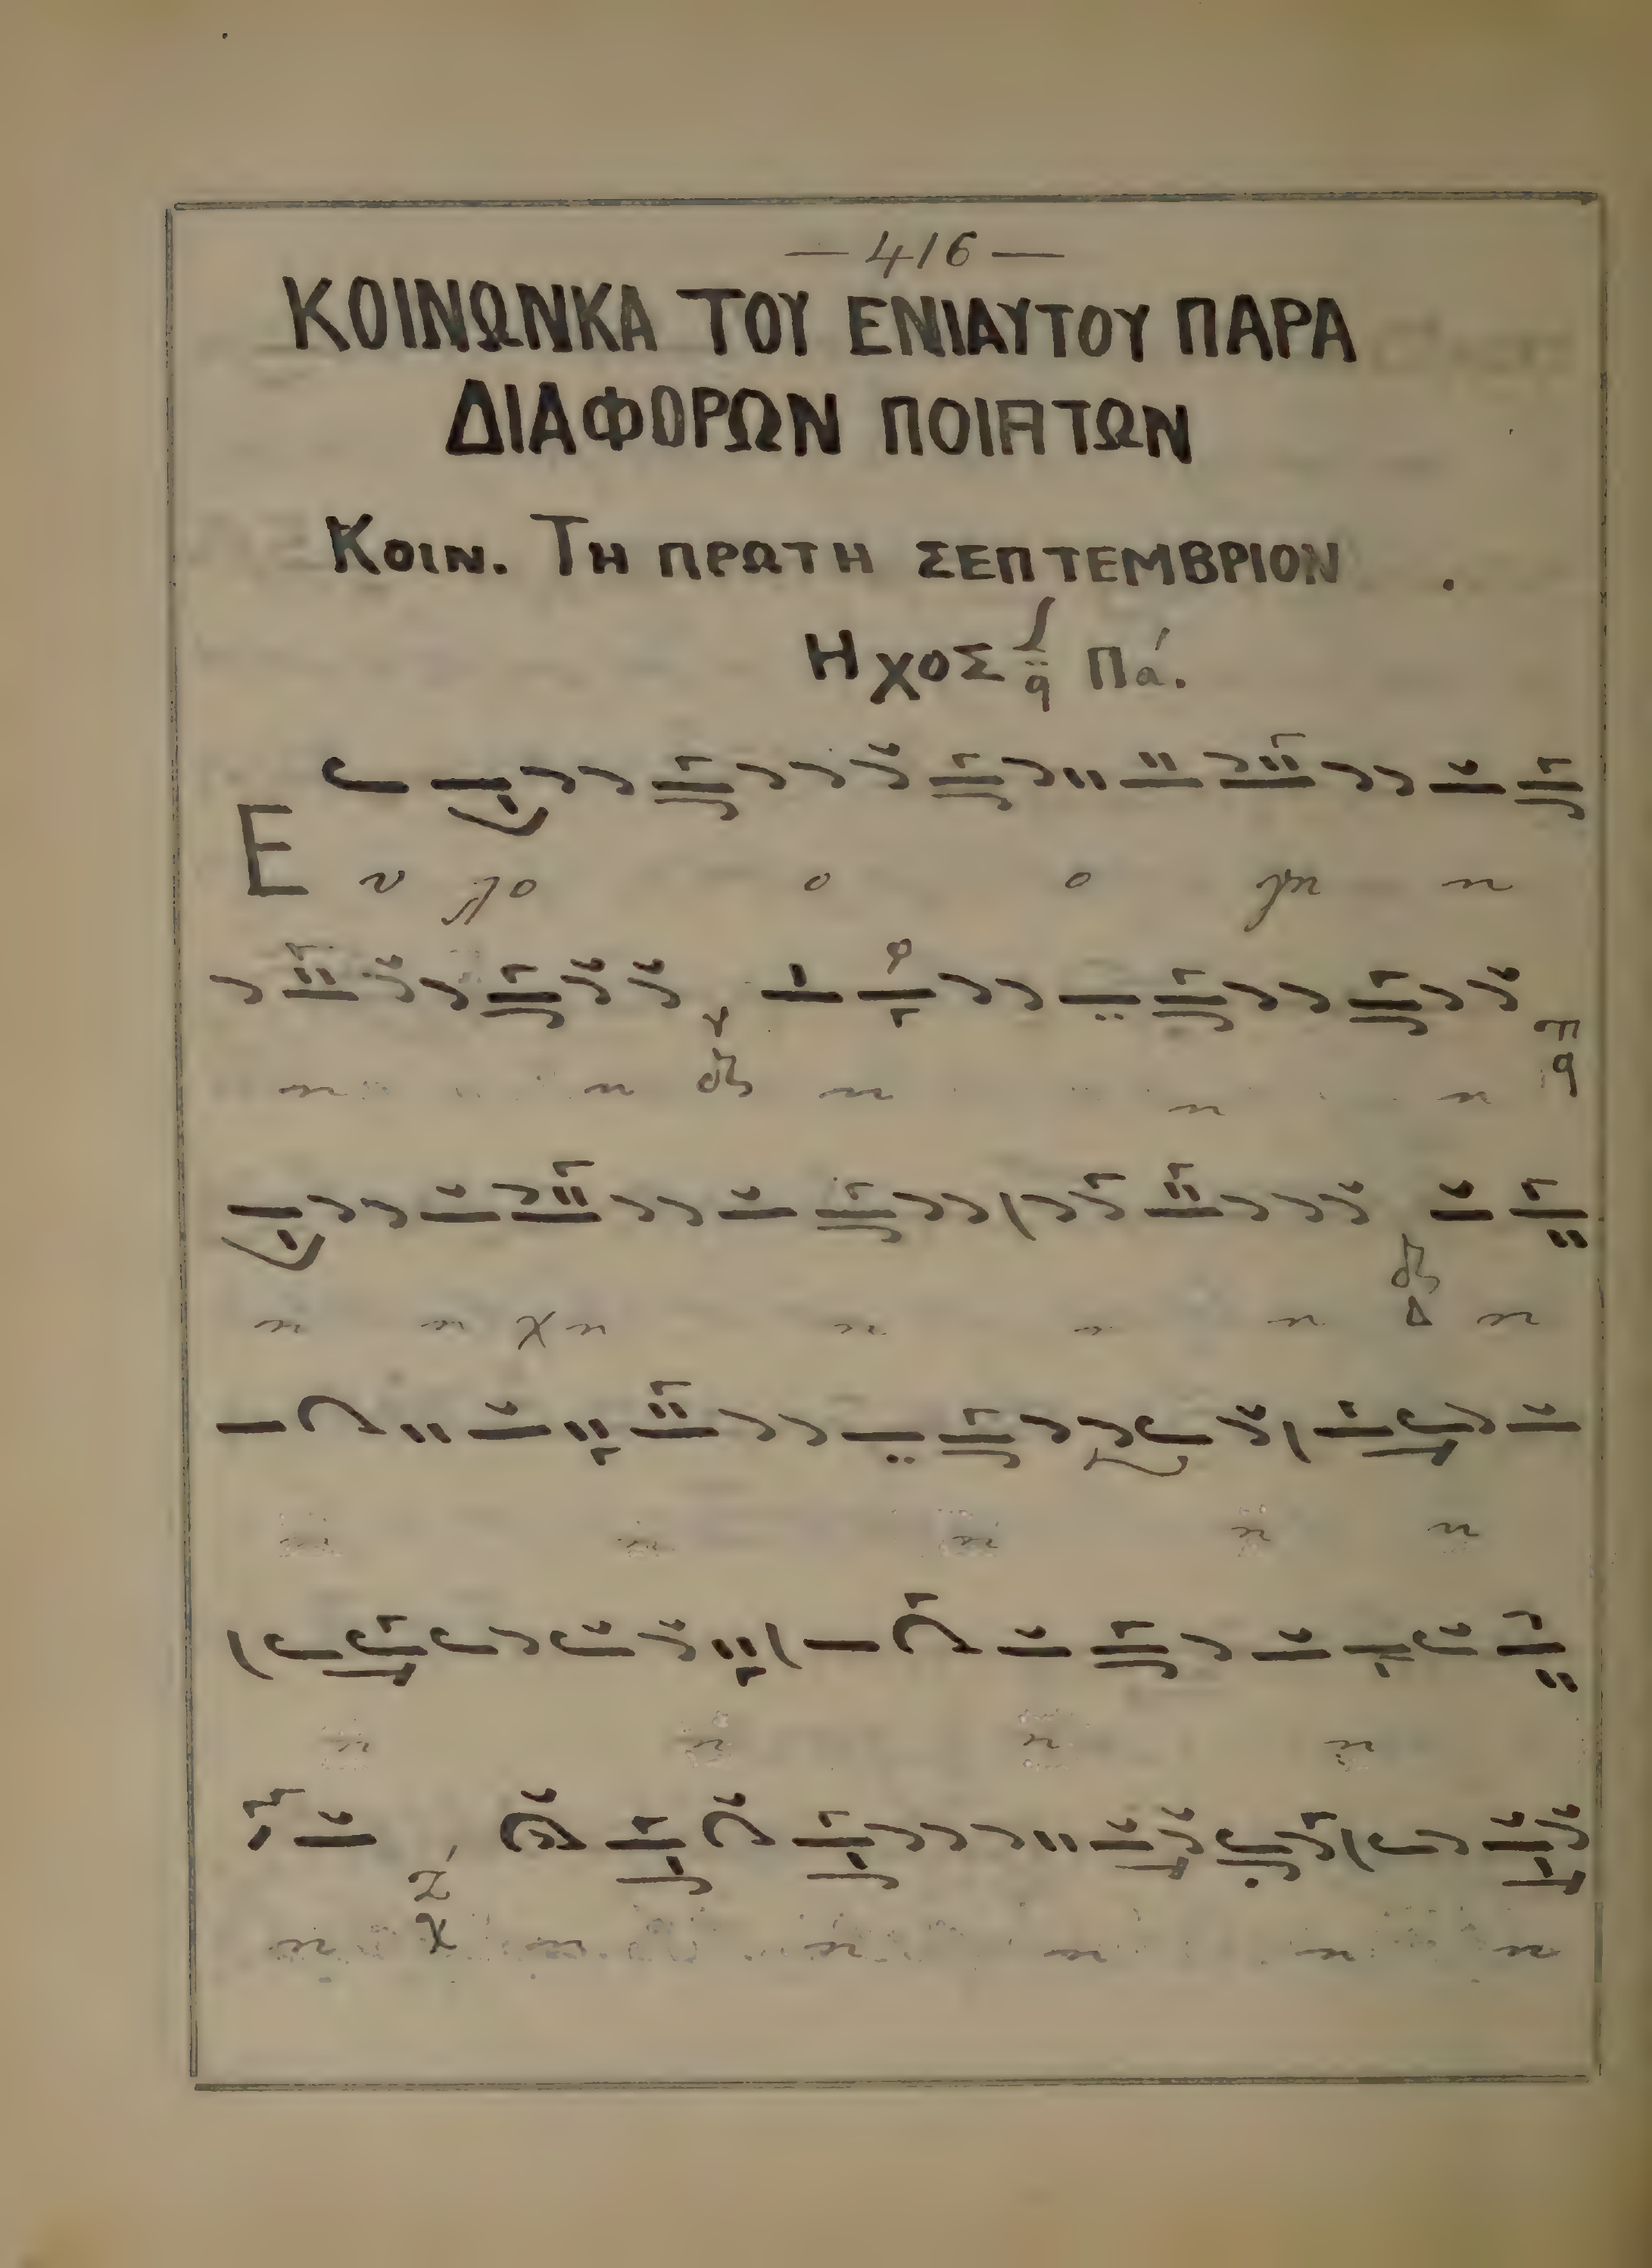 — 416 —
ΚΟΙΝΩΝΚΑ ΤΟΥ ΕΝΙΑΥΤΟΥ ΠΑΡΑ
ΔΙΑΦΟΡΩΝ ΠΟΙΗΤΩΝ
ΚΟΙΝ. ΤΗ ΠΡΩΤΗ ΣΕΠΤΕΜΒΡΙΟΝ
ΗΧΟΣ Πά.
Ε υ λο ο ο γη η
η η η η η
η η χη η η η Δ η
η η η η η
η η η η
η η η η η η